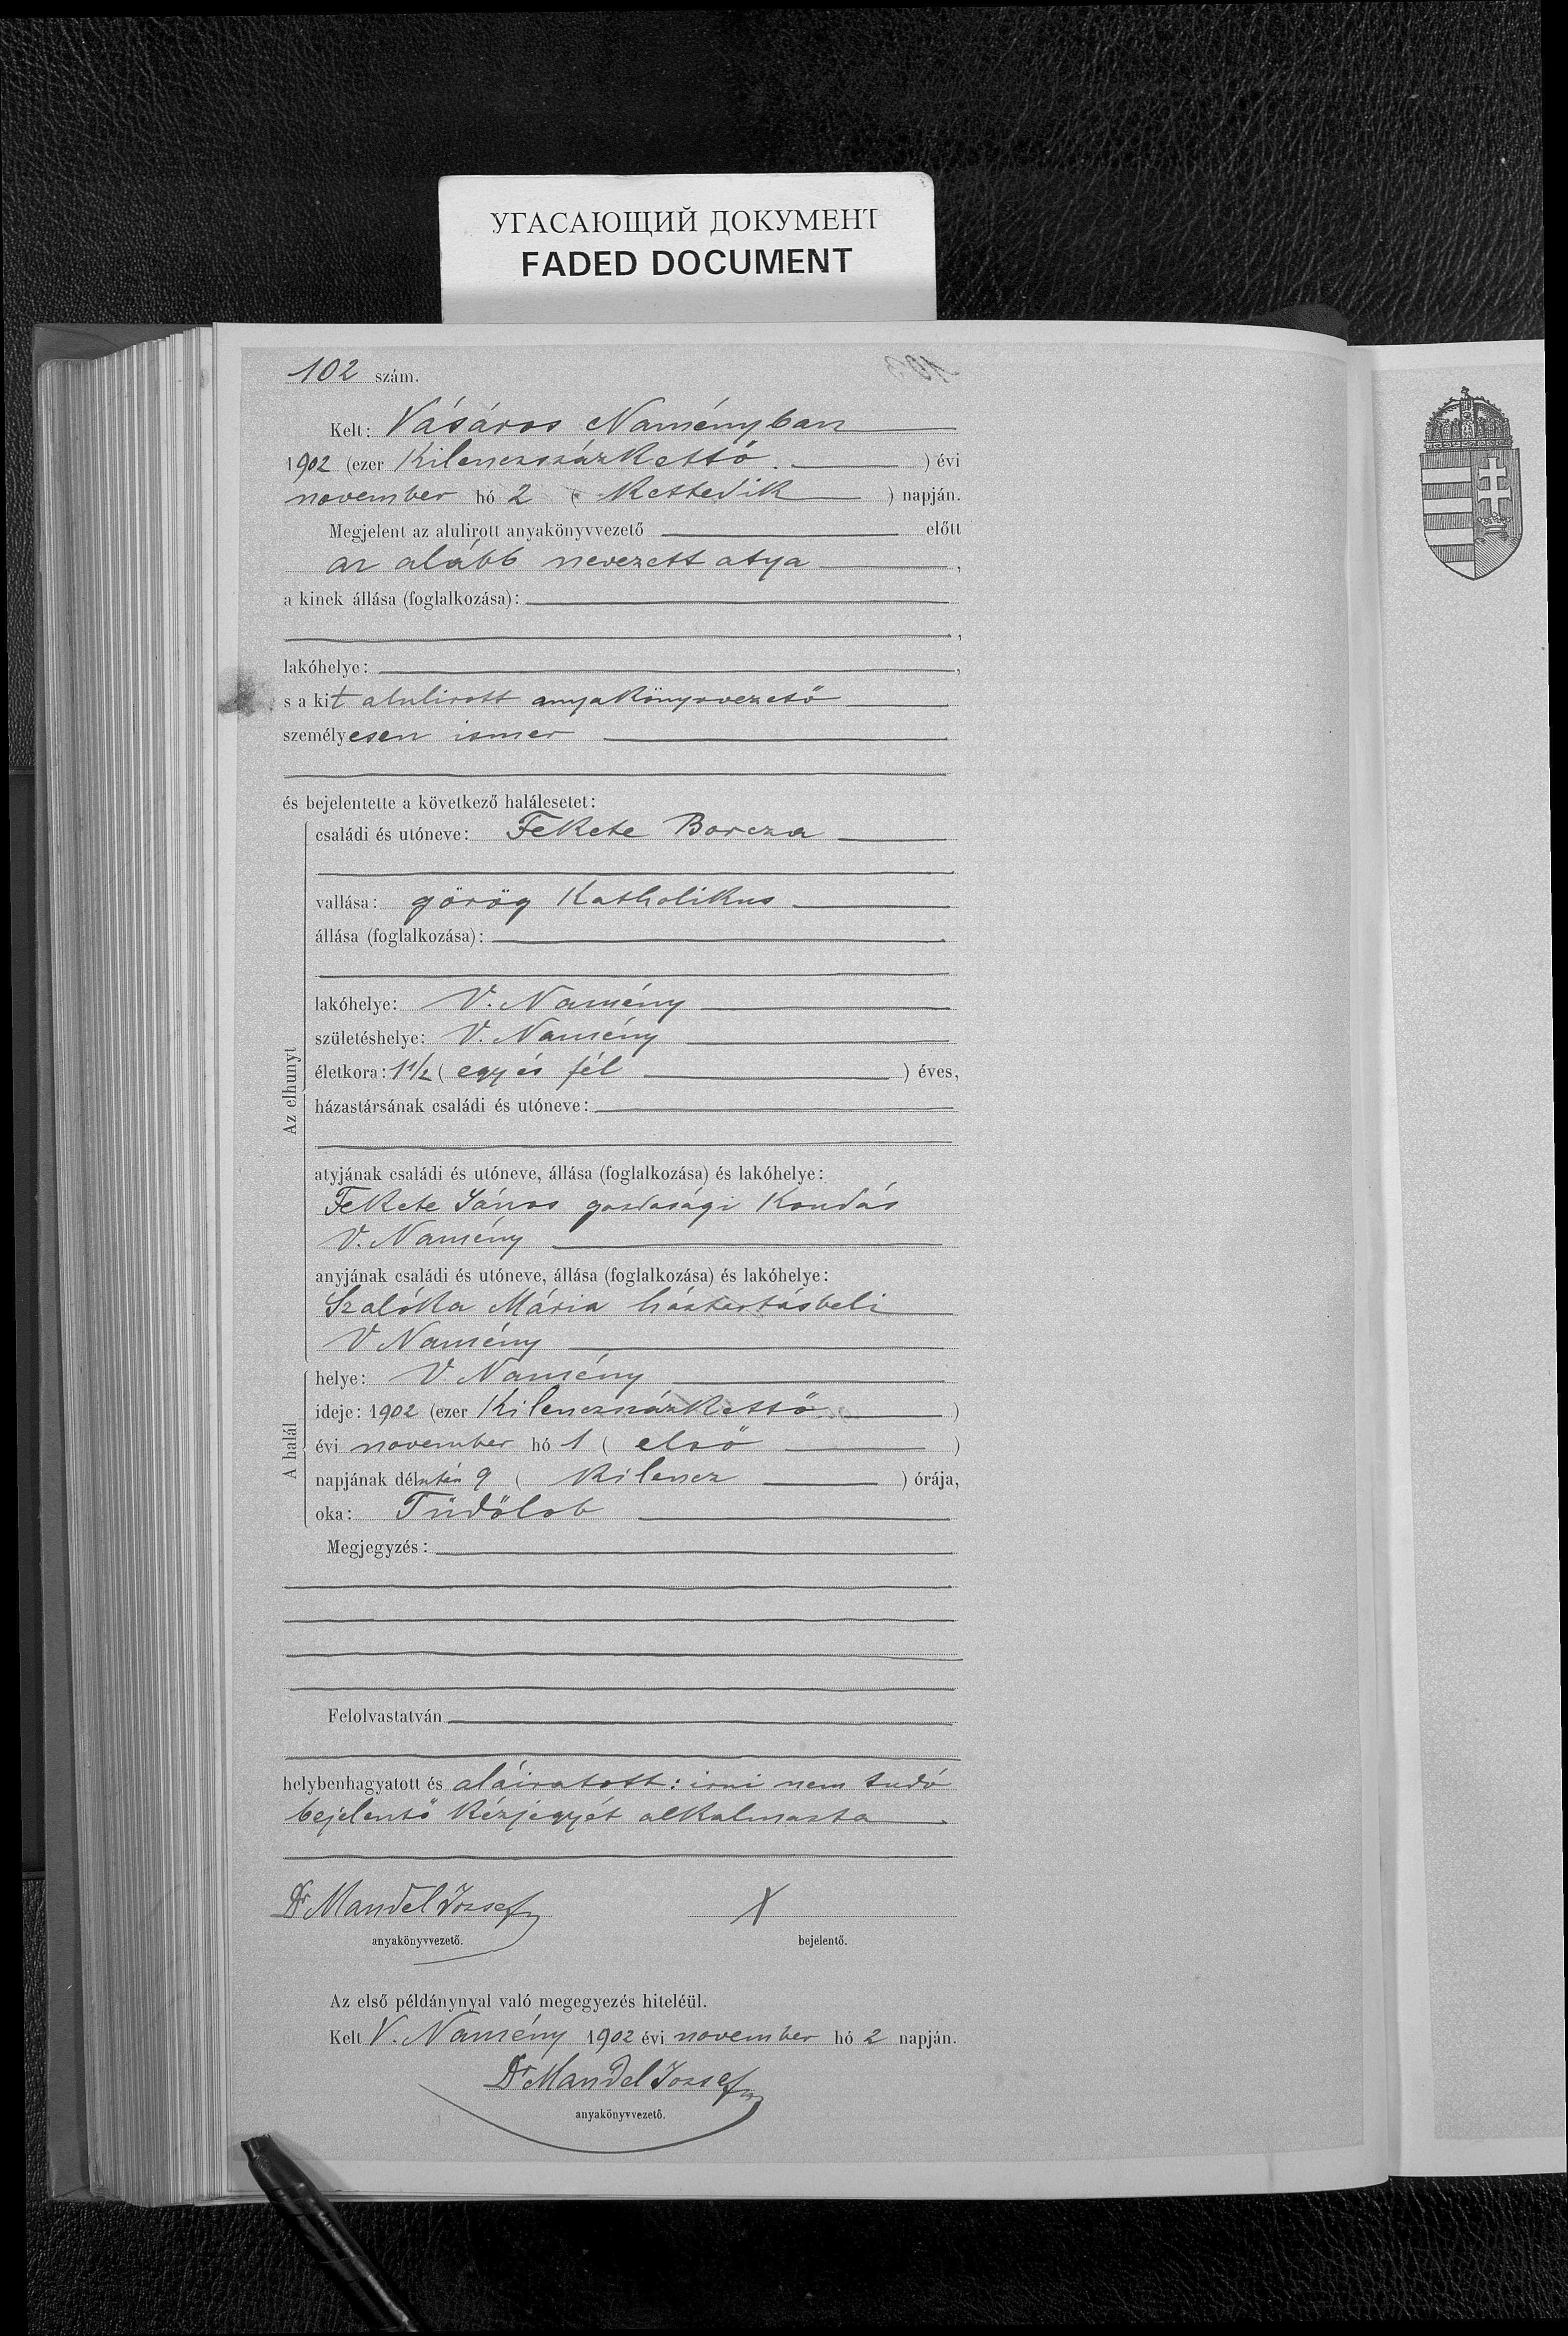 УГАСАЮЩИЙ ДОКУМЕНТ
FADED DOCUMENT
102 szám.
Kelt: Vásáros Naményban
1902 (ezer Kilenczszázkettő ) évi
november hó 2 ( Kettedik ) napján.
Megjelent az alulirott anyakönyvvezető előtt
az alább nevezett atya ,
a kinek állása (foglalkozása):
,
lakóhelye: ,
s a kit alulirott anyakönyvvezető
személyesen ismer
és bejelentette a következő halálesetet:
Az elhunyt
családi és utóneve: Fekete Borcza
vallása: görög Katholikus
állása (foglalkozása):
lakóhelye: V. Namény
születéshelye: V. Namény
életkora: 1 1/2 ( egy és fél ) éves,
házastársának családi és utóneve:
atyjának családi és utóneve, állása (foglalkozása) és lakóhelye:
Fekete János gazdasági Kondás
V. Namény
anyjának családi és utóneve, állása (foglalkozása) és lakóhelye:
Szalóka Mária háztartásbeli
V Namény
A halál
helye: V. Namény
ideje: 1902 (ezer Kilenczszázkettő )
évi november hó 1 ( első )
napjának délután 9 ( Kilencz ) órája,
oka: Tüdőlob
Megjegyzés:
Felolvastatván
helybenhagyatott és aláiratott: irni nem tudó
bejelentő kézjegyét alkalmazta
Dr Mandel József
X
anyakönyvvezető.
bejelentő.
Az első példánynyal való megegyezés hiteléül.
Kelt V. Namény 1902 évi november hó 2 napján.
Dr Mandel József
anyakönyvvezető.